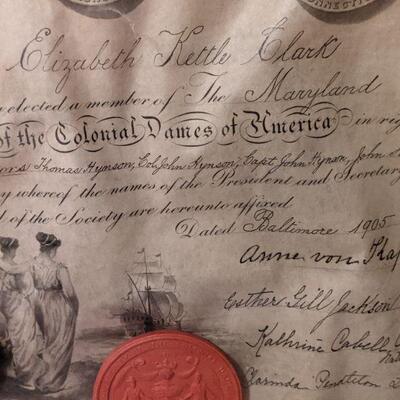 CONNECTICUT
Elizabeth Kettle Clark
elected a member of The Maryland
of the Colonial Dames of America in
Thomas Hynson, Col. John Hynson, Capt. John Hynson, John
whereof the names of the President and Secretary
of the Society are hereunto affixed
Dated Baltimore 1905
Anne von
Esther Gill Jackson
Kathrine Cabell
Clarinda Pendleton